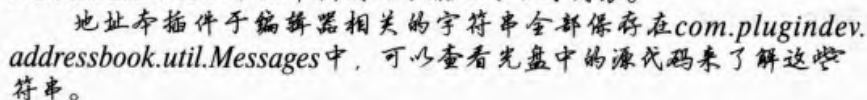 地址本插件于编辑器相关的字符串全部保存在com.plugindev.
addressbook.util.Messages中，可以查看光盘中的源代码来了解这些
符串。